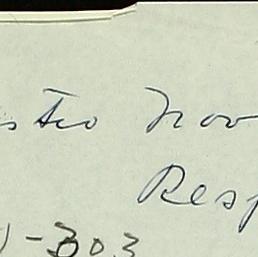 stro Nov
Resp
)-303